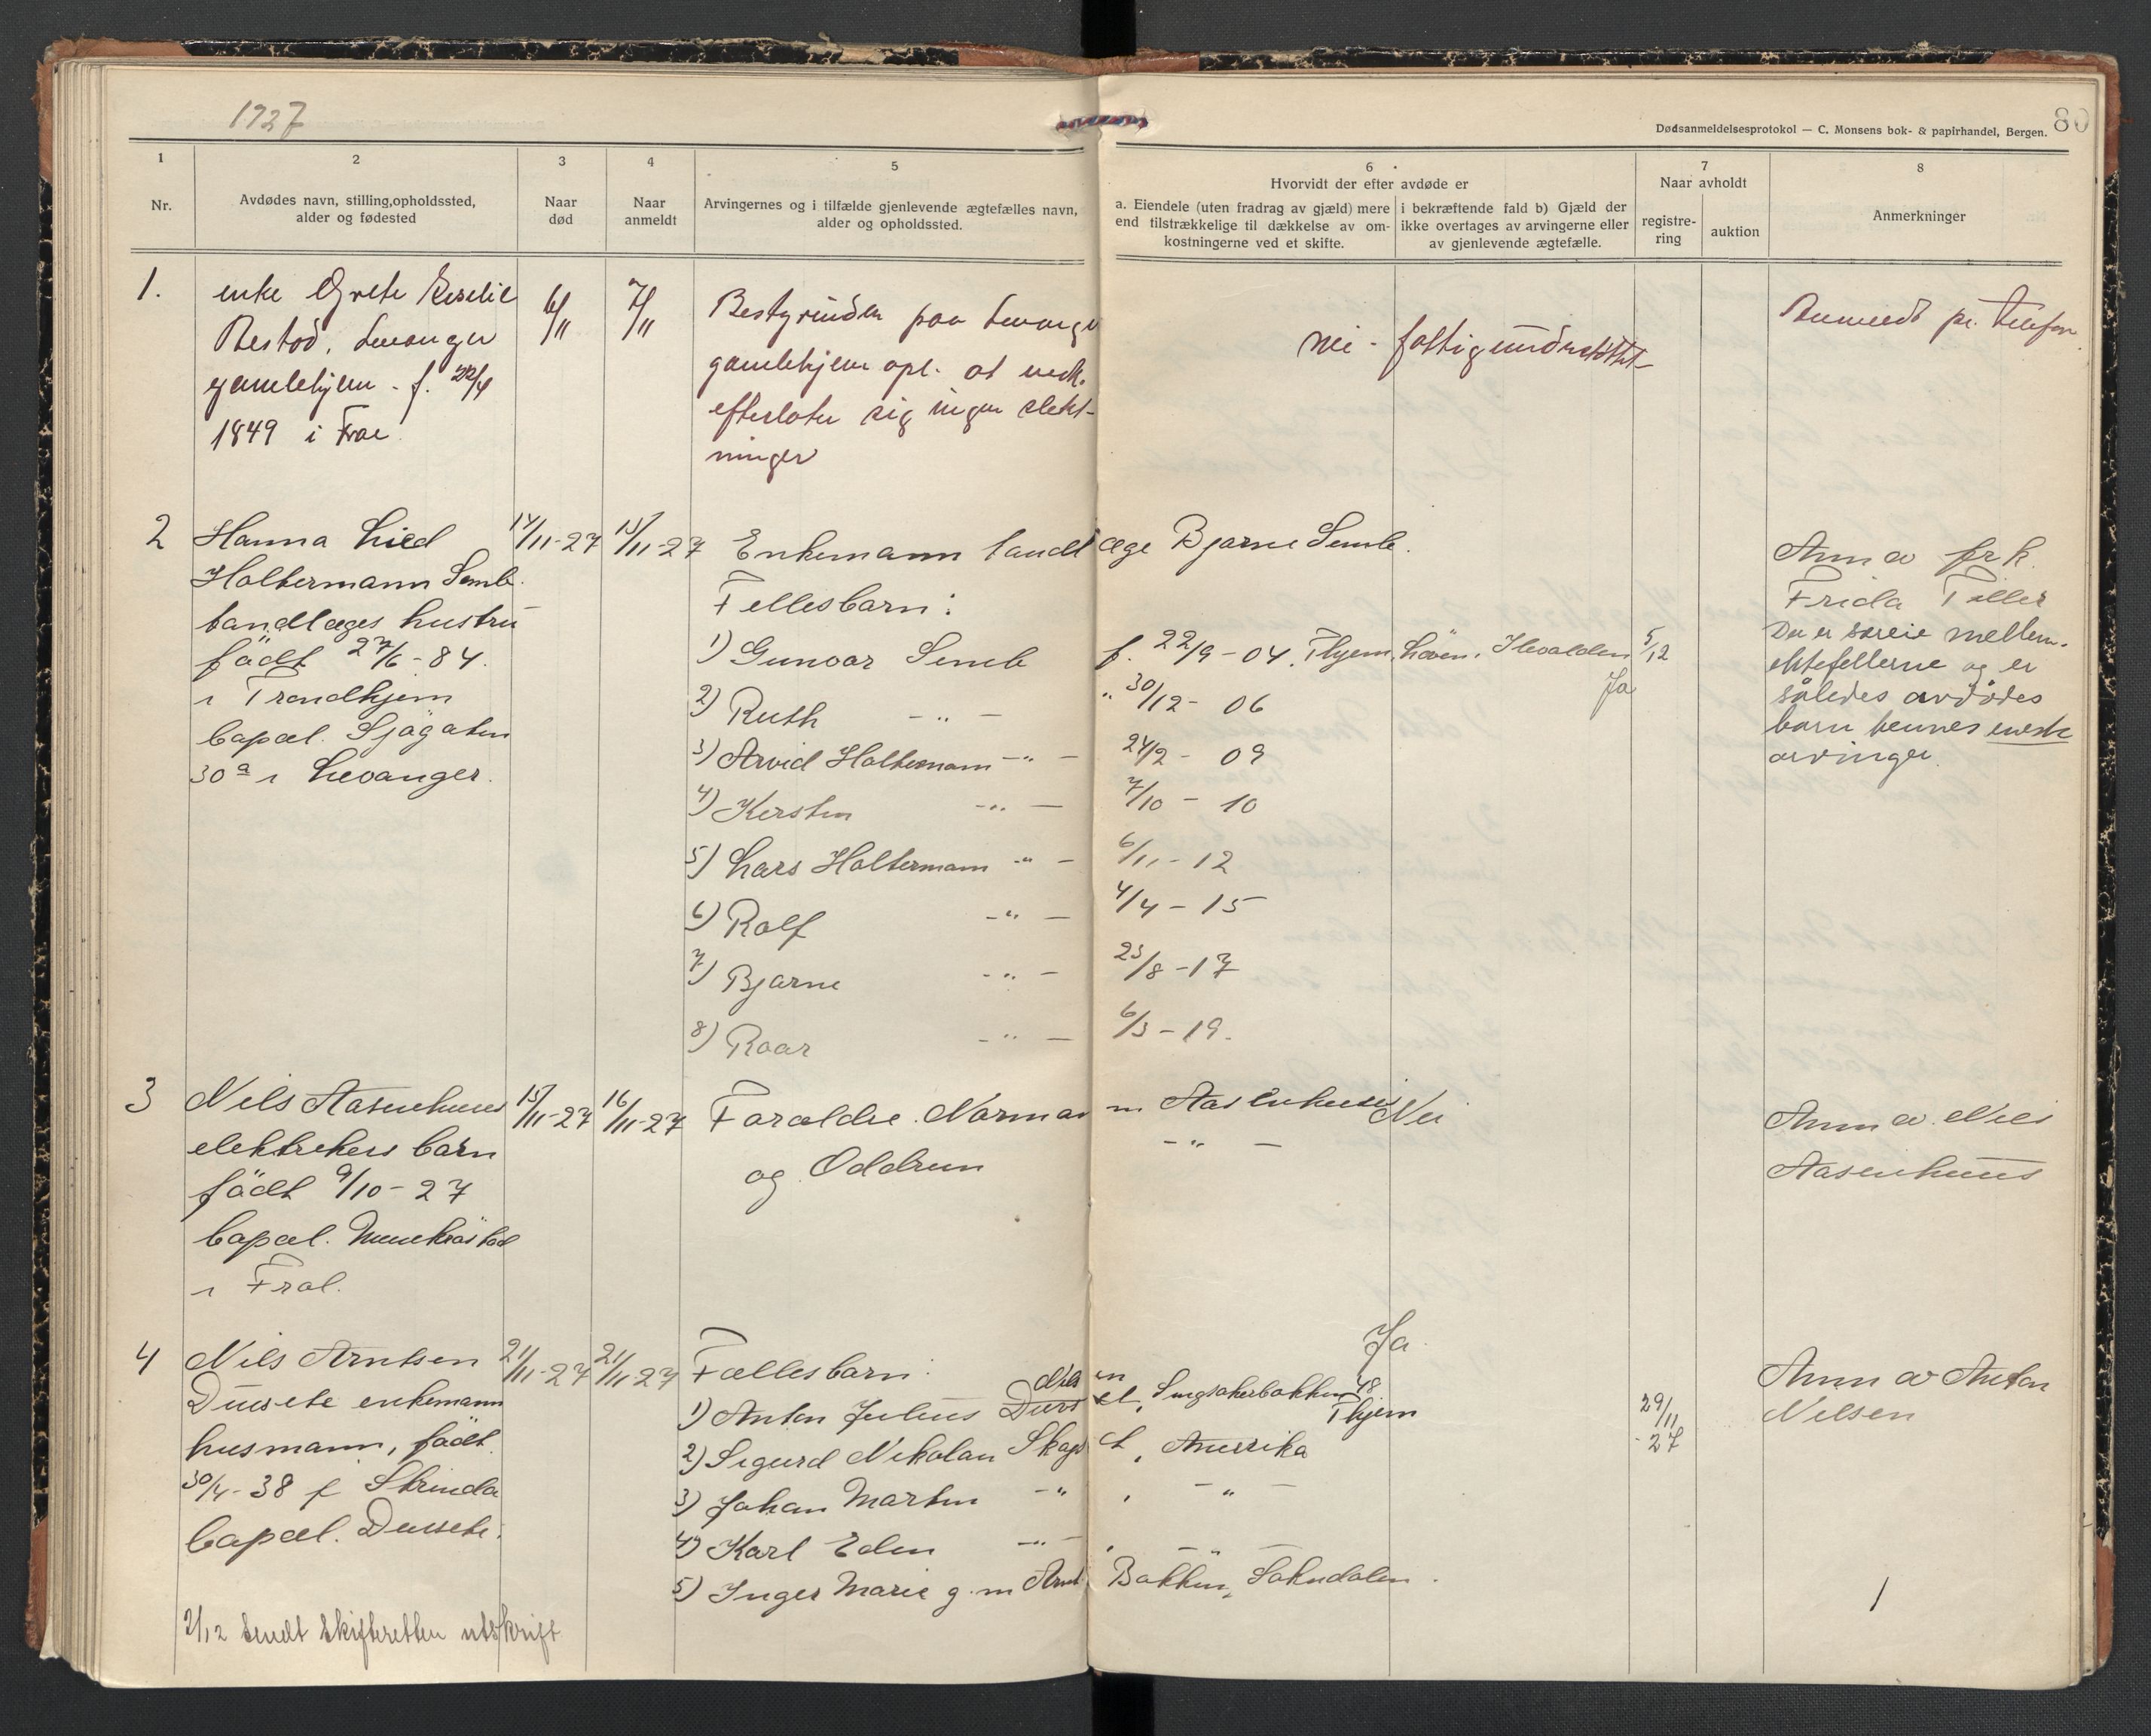 1927
80
Dødsanmeldelsesprotokol — C. Monsens bok- & papirhandel, Bergen.
1
2
3
4
5
6
7
8
Nr.
Avdødes navn, stilling, opholdssted,
alder og fødested
Naar
død
Naar
anmeldt
Arvingernes og i tilfælde gjenlevende ægtefælles navn,
alder og opholdssted.
Hvorvidt der efter avdøde er
a. Eiendele (uten fradrag av gjæld) mere
end tilstrækkelige til dækkelse av om-
kostningerne ved et skifte.
i bekræftende fald b) Gjæld der
ikke overtages av arvingerne eller
av gjenlevende ægtefælle.
Naar avholdt
registre-
ring
auktion
Anmerkninger
1.
enke Grete
Levanger
gamlehjem - f. 22/4
1849 i Frol
6/11
7/11
Bestyrinden paa Levanger
gamlehjem opl. at
efterlater sig ingen slekt-
ninger
nei - fattigunderstöttet
Anmeldt pr. telefon
2
Hanna Lied
Holtermann Semb
tandlæges hustru
födt 27/6-84.
i Trondhjem
bopæl. Sjøgaten
30a i Levanger.
14/11-27
15/11-27
Enkemann tandlæge Bjarne Semb.
Fellesbarn:
1) Gunvor Semb f. 22/9-04, Thjem,
2) Ruth -"- " 30/12-06
3) Arvid Holtermann -"- 24/2-09
4) Kirsten -"- 7/10-10
5) Lars Holtermann -"- 6/11-12
6) Rolf -"- 4/4-15
7) Bjarne -"- 23/8-17
8) Roar -"- 6/3-19.
Ja
5/12
Anm av frk.
Frida Tiller
Du er særeie mellem
ektefellerne og er
således avdödes
barn hennes eneste
arvinger.
3
Nils Aasenhuus
elektrikers barn
födt 9/10-27
bopæl.
i Frol.
15/11-27
16/11-27
Foraldre. Norman Aasenhuus
og Oddrun -"-
Nei
Anm av. Nils
Aasenhuus
4
Nils Arntsen
enkemann
husmann, födt
30/4-38 f Strinda
bopæl.
21/11-27
21/11-27
Fællesbarn:
1) Anton Julius 48
Thjem
2) Sigurd Nikolau , Amerika
3) Johan Martin -" , -"-
4) Karl Eden -"- , -"-
5) Inger Marie g. m Arnt Bakken, Soknedalen.
Ja.
29/11
-27
Anm av Anton
Nilsen
2/12 sendt skifteretten utskrift